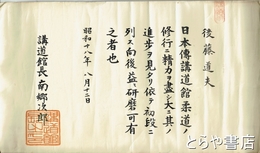 後藤道夫
日本傳講道館柔道ノ
修行ニ精力ヲ盡シ大ニ其ノ
進歩ヲ見タリ依テ初段ニ
列ス向後益々研磨可有
之者也
昭和十八年八月十二日
講道館長南郷次郎
とらや書店